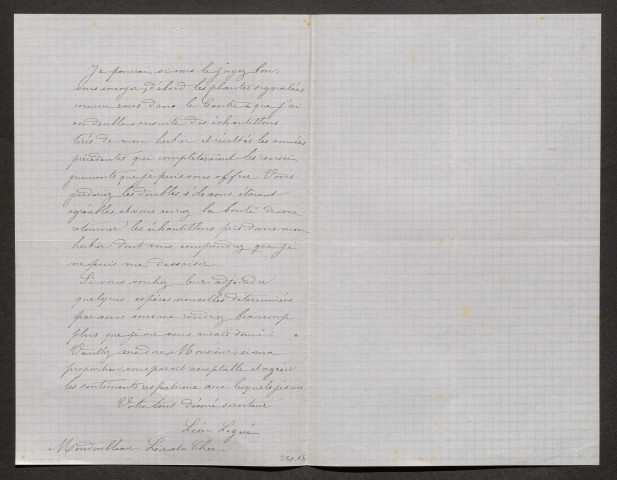 Je pourrai, si vous le jugez bon,
vous envoyer d'abord les plantes signalées
comme rares dans le Centre & que j'ai
en double ensuite des échantillons
tirés de mon herbier et récoltés les années
précédentes qui complèteraient les rensei-
gnements que je puis vous offrir. Vous
garderiez les doubles s'ils vous étaient
agréables, et vous auriez la bonté de me
retourner les échantillons pris dans mon
herbier dont vous comprendrez que je
ne puis me dessaisir.
Si vous voulez bien adjoindre
quelques espèces nouvelles déterminées
par vous vous me rendrez beaucoup
plus que je ne vous aurai donné.
Veuillez me dire Monsieur si ma
proposition vous parait acceptable et agréer
les sentiments respectueux avec lesquels je suis
Votre tout dévoué serviteur
Léon Legué
Mondoubleau Loir et Cher